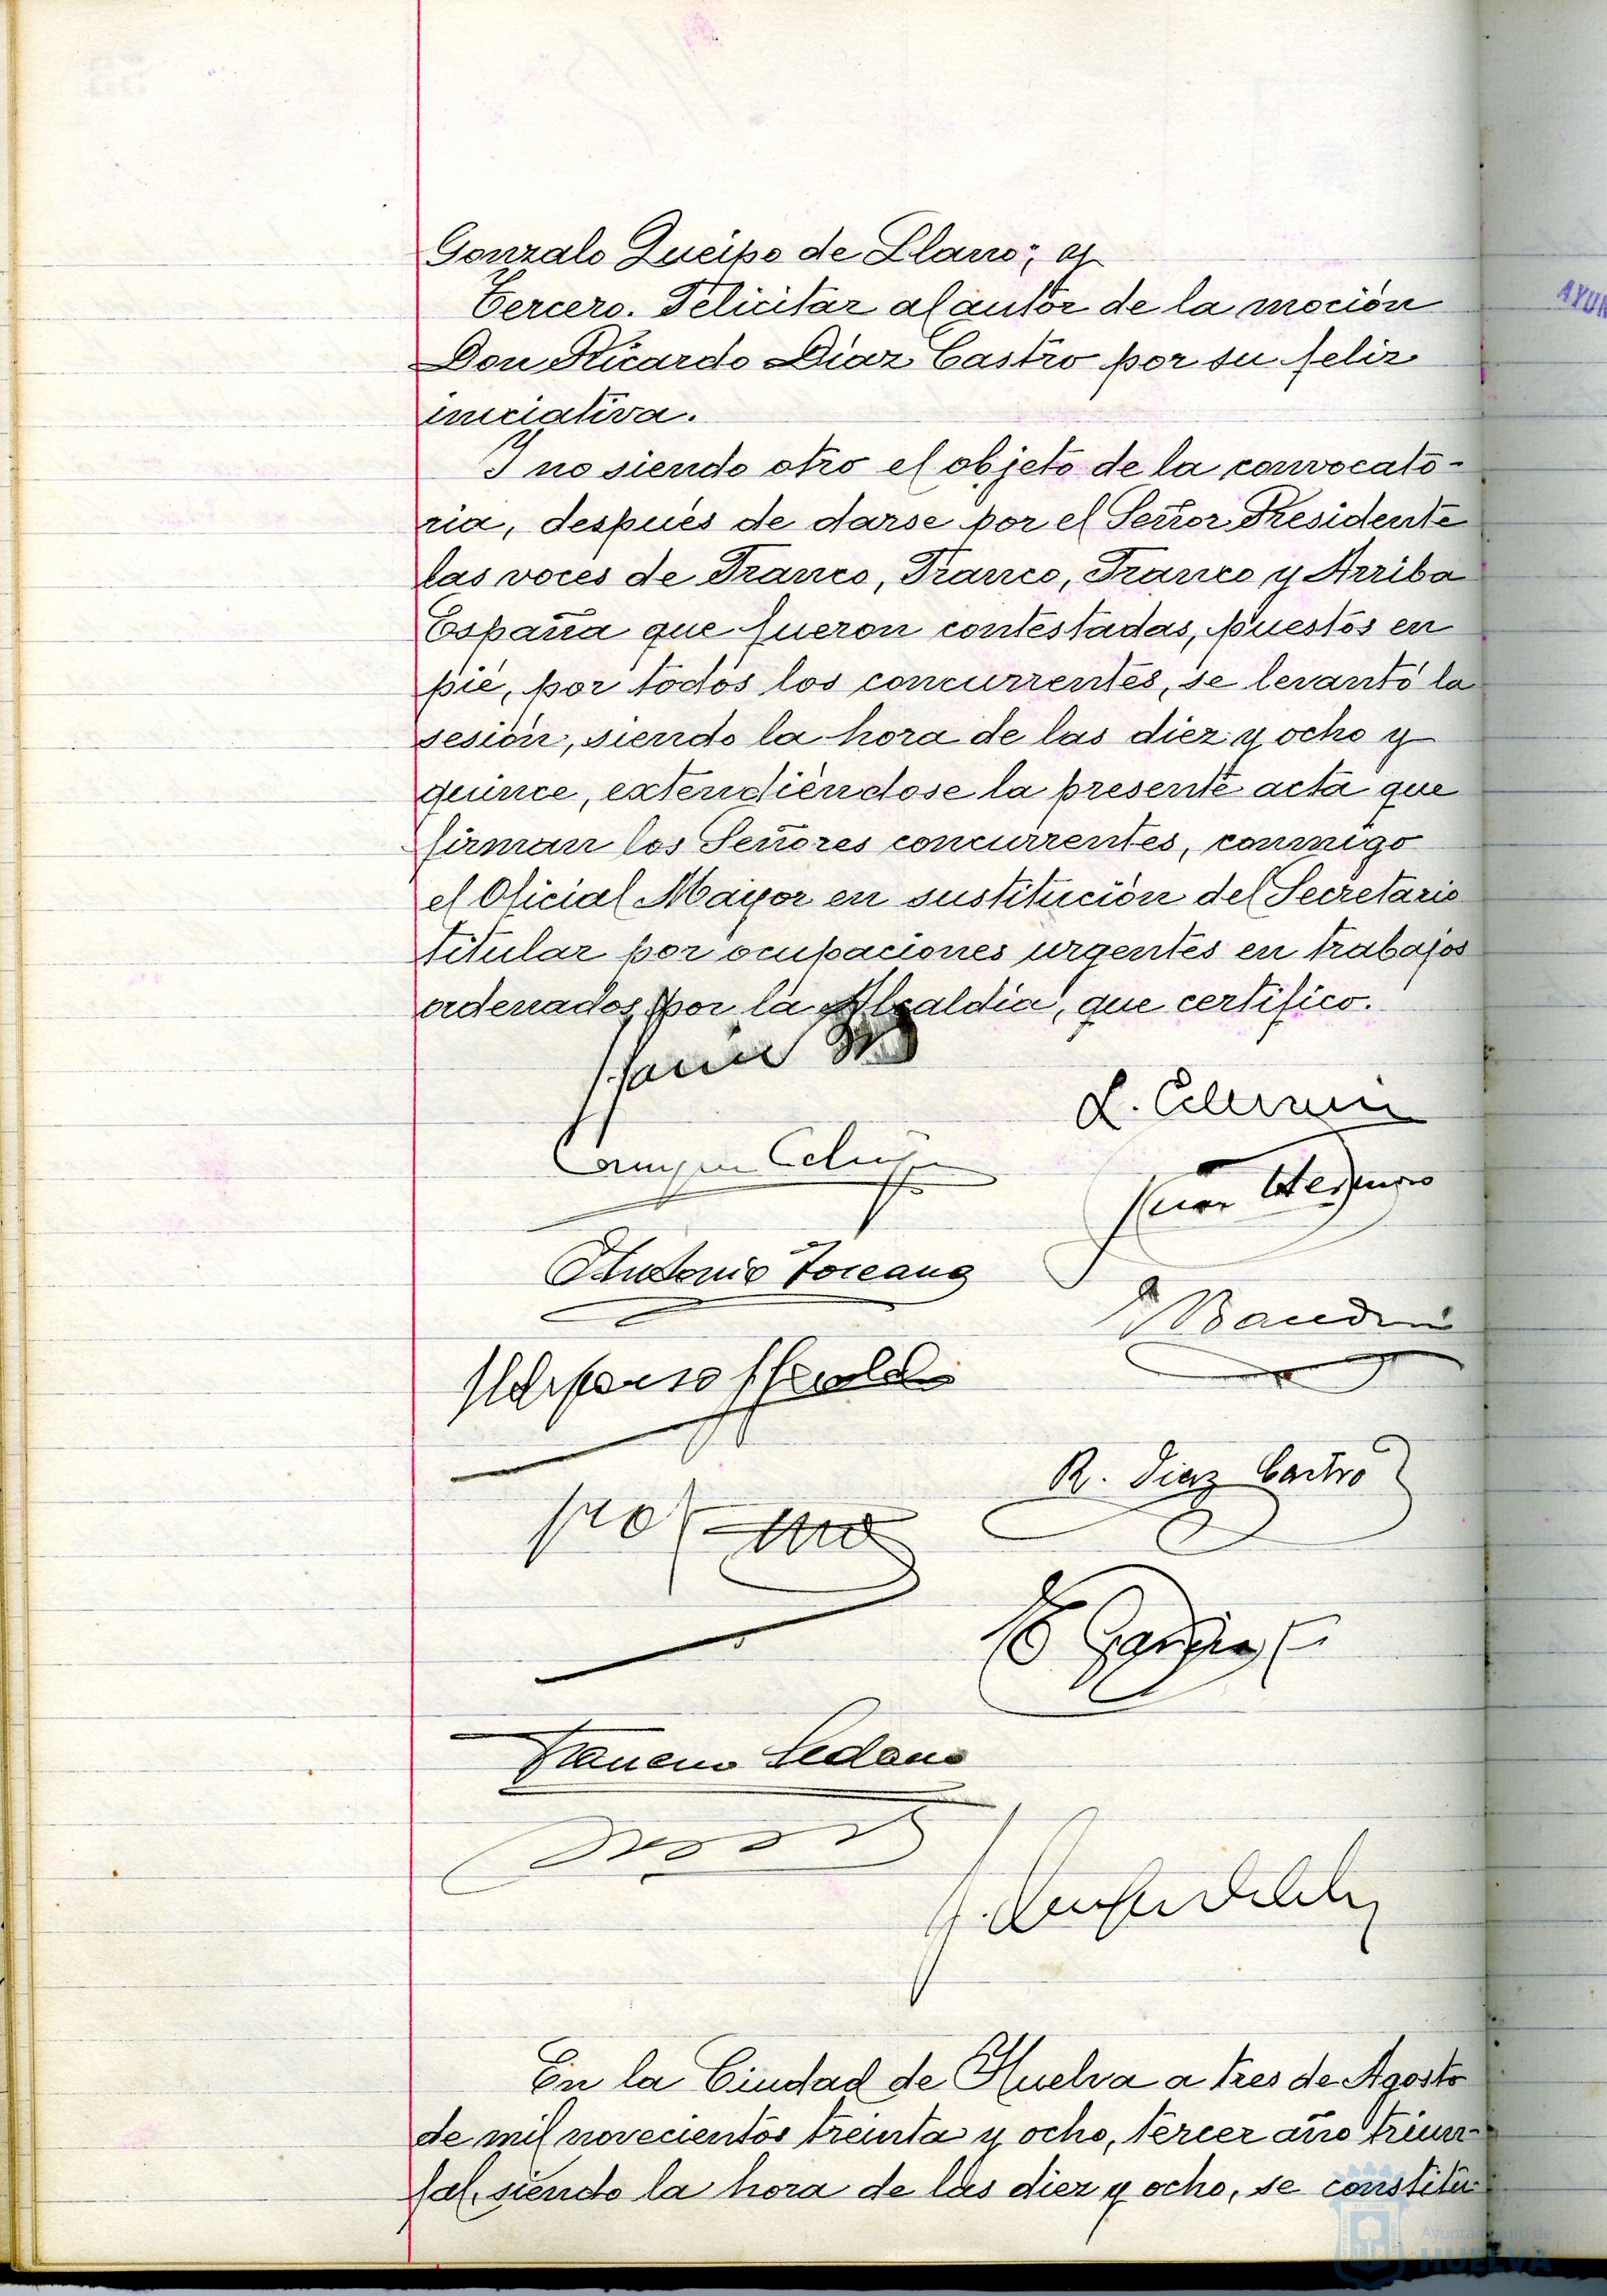 Gonzalo Queipo de Llano; y
Tercero. Felicitar al autor de la moción
Don Ricardo Díaz Castro por su feliz
iniciativa.
Y no siendo otro el objeto de la convocato-
ria, después de darse por el Señor Presidente
las voces de Franco, Franco, Franco y Arriba
España que fueron contestadas, puestos en
pié, por todos los concurrentes, se levantó la
sesión, siendo la hora de las diez y ocho y
quince, extendiéndose la presente acta que
firman los Señores concurrentes, conmigo
el Oficial Mayor en sustitución del Secretario
titular por ocupaciones urgentes en trabajos
ordenados por la Alcaldía, que certifico.
Antonio Toscano
R. Diaz Castro
Garcia
Francisco Sedano
En la Ciudad de Huelva a tres de Agosto
de mil novecientos treinta y ocho, tercer año triun-
fal, siendo la hora de las diez y ocho, se constitu-
AYUN
Ayuntamiento de
HUELVA